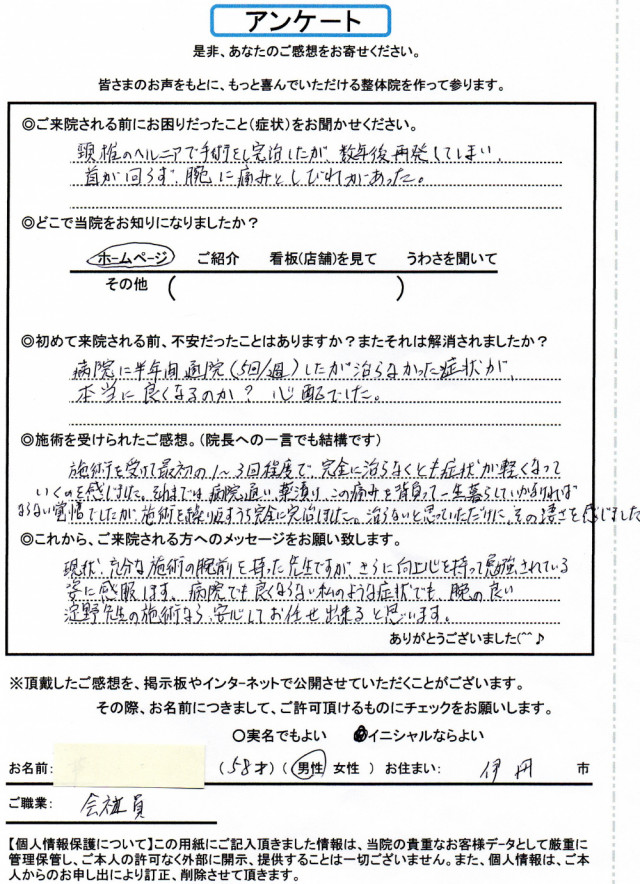 アンケート
是非、あなたのご感想をお寄せください。
皆さまのお声をもとに、もっと喜んでいただける整体院を作って参ります。
◎ご来院される前にお困りだったこと(症状)をお聞かせください。
頸椎のヘルニアで手術をし完治したが、数年後再発してしまい、
首が回らず、腕に痛みとしびれがあった。
◎どこで当院をお知りになりましたか？
ホームページ ご紹介 看板(店舗)を見て うわさを聞いて
その他 ( )
◎初めて来院される前、不安だったことはありますか？またそれは解消されましたか？
病院に半年間通院(5回/週)したが治らなかった症状が、
本当に良くなるのか？心配でした。
◎施術を受けられたご感想。(院長への一言でも結構です)
施術を受けて最初の1～3回程度で、完全に治らなくとも症状が軽くなって
いくのを感じました。それまでは、病院通い、薬漬け、この痛みを背負って一生暮らしていかなければ
ならない覚悟でしたが、施術を繰り返すうち完全に完治しました。治らないと思っていただけに、その凄さを感じました
◎これから、ご来院される方へのメッセージをお願い致します。
現状、充分な施術の腕前を持った先生ですが、さらに向上心を持って勉強されている
姿に感服します。病院でも良くならない私のような症状でも、腕の良い
淀野先生の施術なら、安心してお任せ出来ると思います。
ありがとうございました(^^♪
※頂戴したご感想を、掲示板やインターネットで公開させていただくことがございます。
その際、お名前につきまして、ご許可頂けるものにチェックをお願いします。
○実名でもよい ○イニシャルならよい
お名前: (58才) (男性 女性 ) お住まい: 伊丹 市
ご職業: 会社員
【個人情報保護について】この用紙にご記入頂きました情報は、当院の貴重なお客様データとして厳重に
管理保管し、ご本人の許可なく外部に開示、提供することは一切ございません。また、個人情報は、ご本
人からのお申し出により訂正、削除させて頂きます。